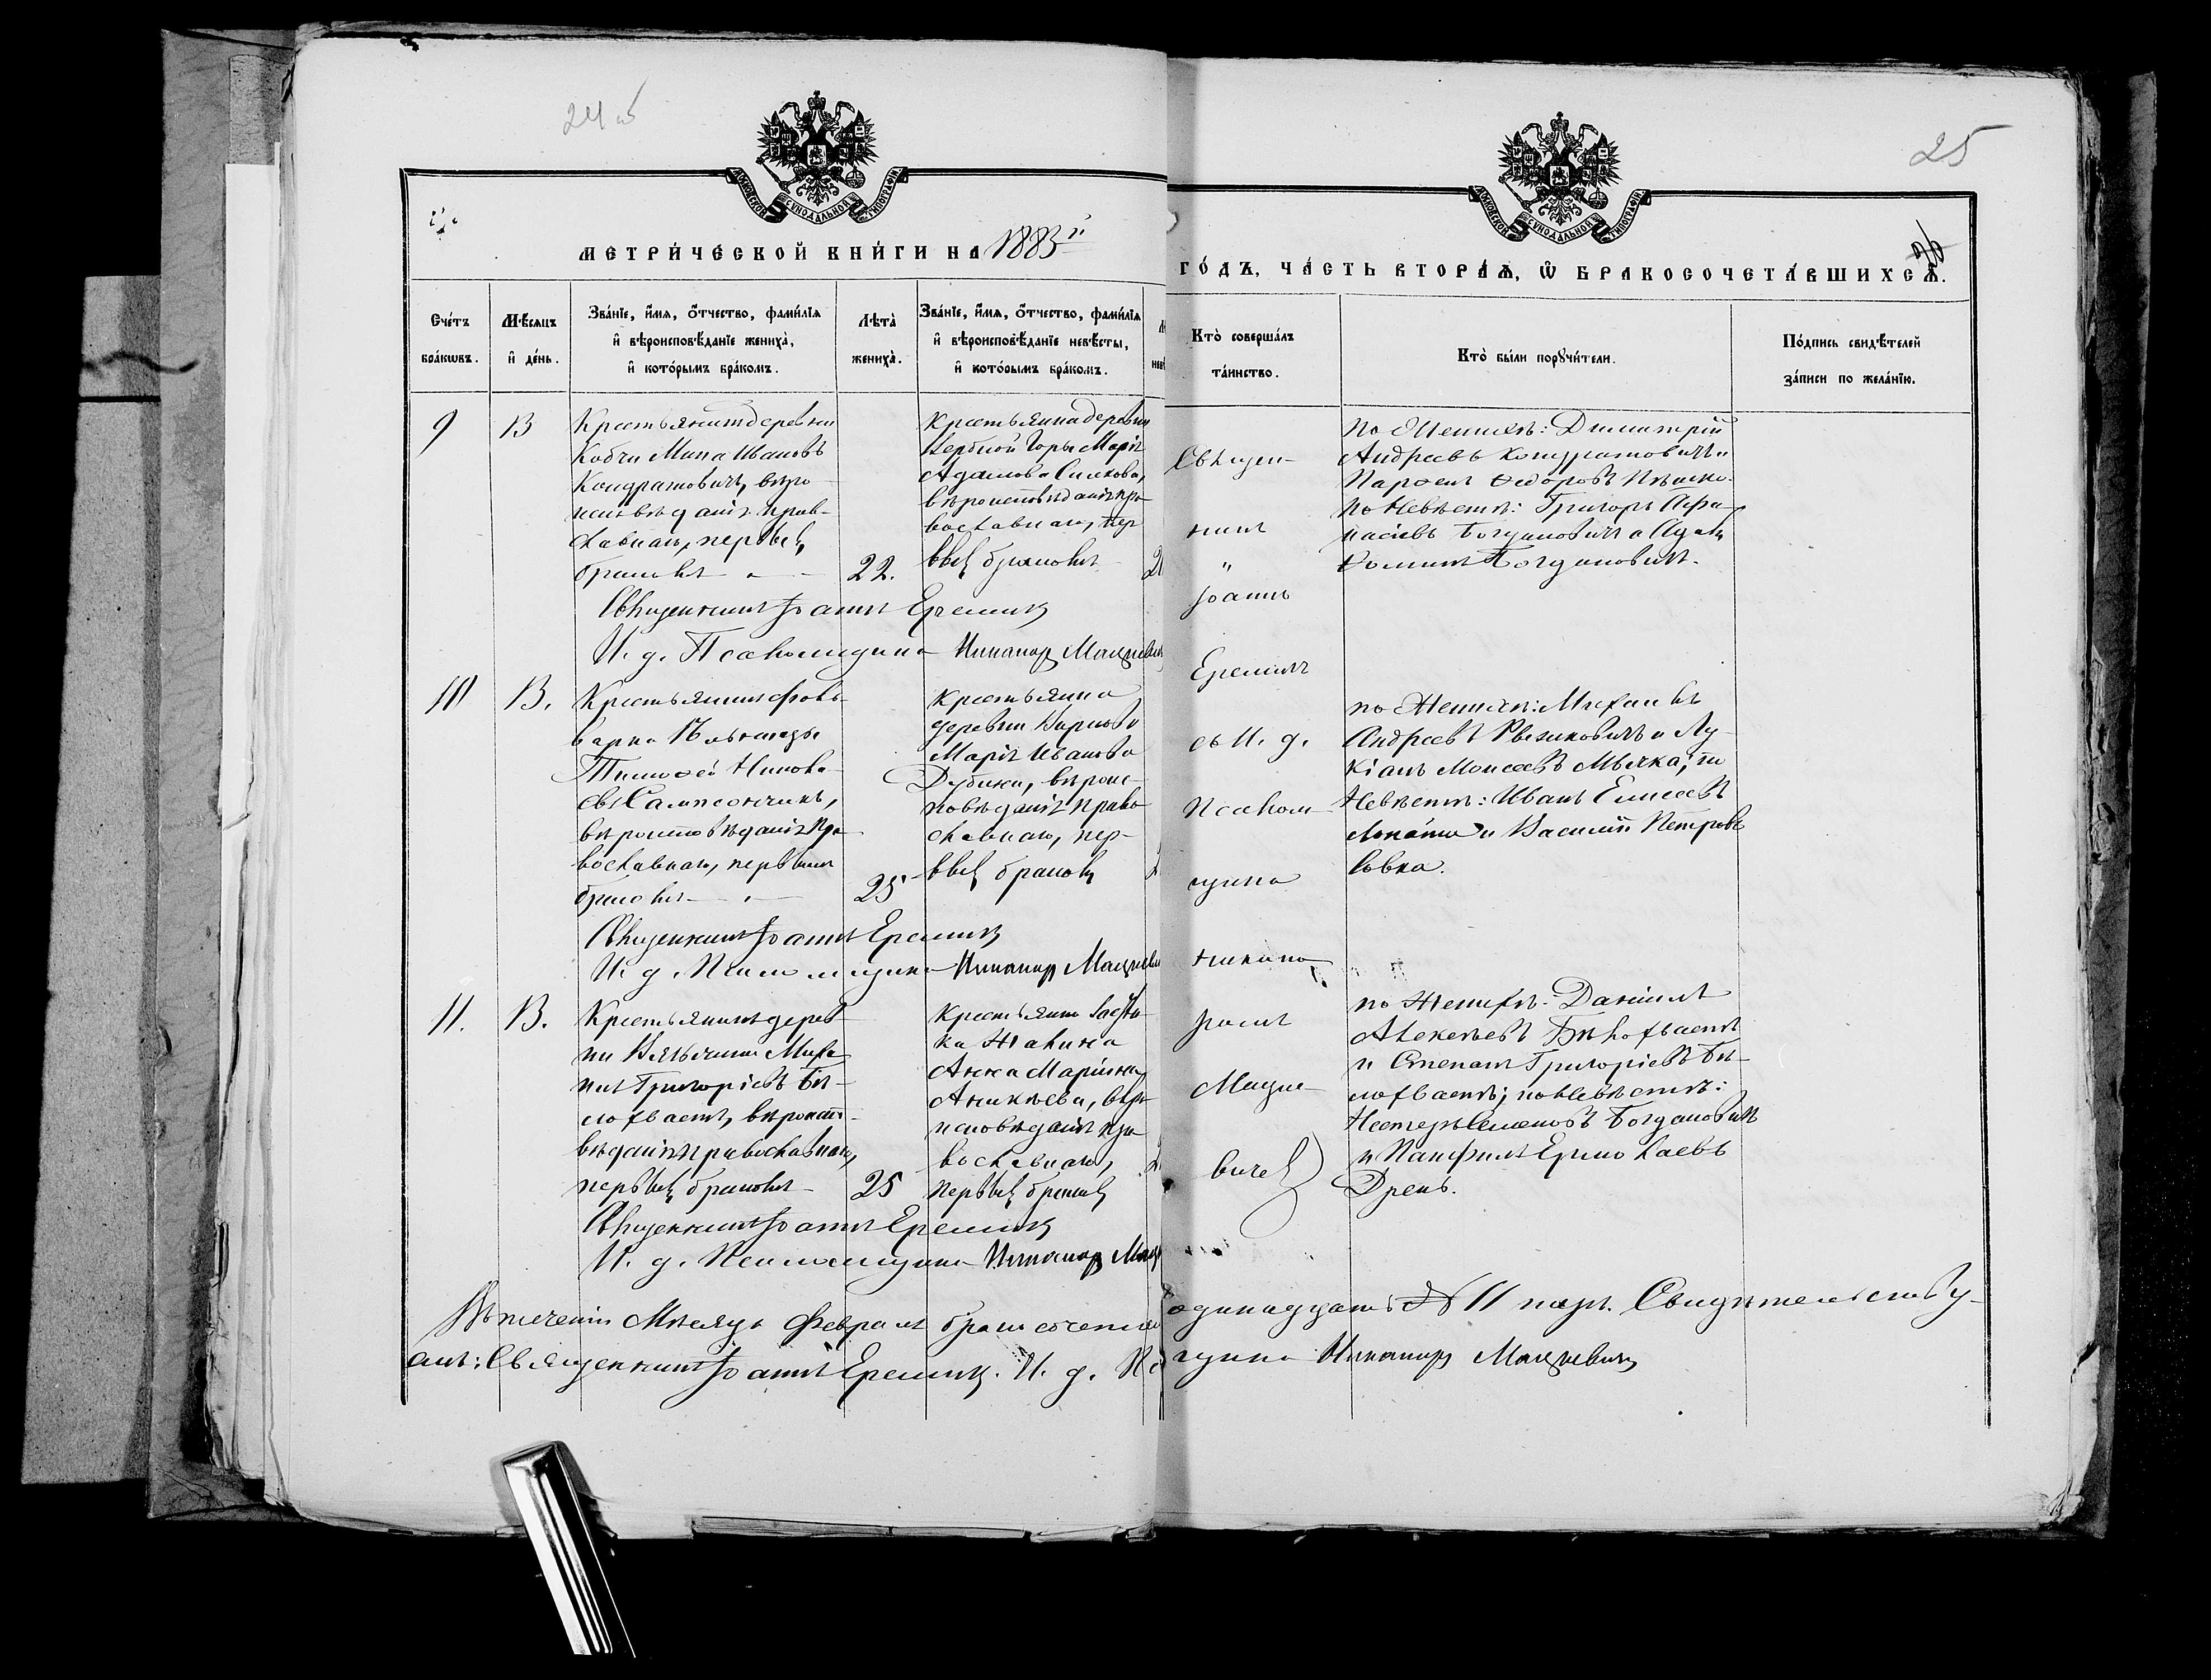 24 об
25
МОСКОВСКОЙ СѴНОДАЛЬНОЙ ТИПОГРАФІИ
МОСКОВСКОЙ СѴНОДАЛЬНОЙ ТИПОГРАФІИ
МЕТРИ́ЧЕСКОЙ КНИ́ГИ НА 1883й
ГО́ДЪ, ЧА́СТЬ ВТОРА́Ѧ, Ѿ БРАКОСОЧЕТА́ВШИХСѦ.
Сче́тъ бра́кѡвъ.
Мѣ́сяцъ и҆ де́нь.
Зва́нїе, и҆́мѧ, ѻ҆́тчество, фами́лїѧ и҆ вѣ́роисповѣ́данїе жениха̀, и҆ кото́рымъ бра́комъ.
Лѣта̀ жениха̀.
Зва́нїе, и҆́мѧ, ѻ҆́тчество, фами́лїѧ и҆ вѣ́роисповѣ́данїе невѣ́сты, и҆ кото́рымъ бра́комъ.
Кто̀ соверша́лъ та́инство.
Кто̀ бы́ли порꙋчи́тели.
По́дпись свидѣ́телей за́писи по жела́нїю.
9
13
Крестьянинъ деревни
Кобчи Мина Ивановъ
Кондратовичъ, вѣро-
исповѣданія прав-
славнаго, первымъ
бракомъ
22.
Крестьянка деревни
Вербной Горы Марія
Адамова
вѣроисповѣданія пра-
вославнаго, пер
вымъ бракомъ
по Женихѣ: Димитрій
Андреевъ Кондратовичъ и
Парфенъ Ѳедоровъ
по Невѣстѣ: Григорій Афа-
насіевъ Богдановичъ и Адамъ
Ѳоминъ Богдановичъ.
Священникъ Іоаннъ Еремичъ
И. д. Псаломщика Никаноръ Мацкевичъ
10
13.
Крестьянинъ фоль-
варка
Тимофей
Сампсончикъ,
вѣроисповѣданія пра-
вославнаго, первымъ
бракомъ
25
Крестьянка
деревни
Марія Иванова
Дубина, вѣроис-
повѣданія право-
славнаго, пер-
вымъ бракомъ
по Женихѣ: Михаилъ
Андреевъ и Лу-
кіанъ Моисеевъ по
Невѣстѣ: Иванъ Елисеевъ
и Василій Петровъ
Священникъ Іоаннъ Еремичъ
И. д. Псаломщика Никаноръ Мацкевичъ
11.
13.
Крестьянинъ дерев-
ни Миха-
илъ Григоріевъ Бѣ-
лохвостъ, вѣроиспо-
вѣданія православнаго,
первымъ бракомъ
25
Крестьянка
Анна Маріина
Аникѣева, вѣро-
исповѣданія пра-
вославнаго,
первымъ бракомъ
по Женихѣ: Даніилъ
Алексѣевъ Бѣлохвостъ
и Степанъ Григоріевъ Бѣ-
лохвостъ; по Невѣстѣ:
Нестеръ Семеновъ Богдановичъ
и Панфилъ Ермолаевъ
Дрень.
Священникъ Іоаннъ Еремичъ
И. д. Псаломщика Никаноръ
Священ-
никъ
"
Іоаннъ
Еремичъ
съ И. д.
Псалом-
щика
Никано-
ромъ
Мацке-
вичемъ
Въ теченіи Мѣсяца Февраля одинадцать № 11 паръ. Свидѣтельству-
емъ: Священникъ Іоаннъ Еремичъ. И. д. Никаноръ Мацкевичъ